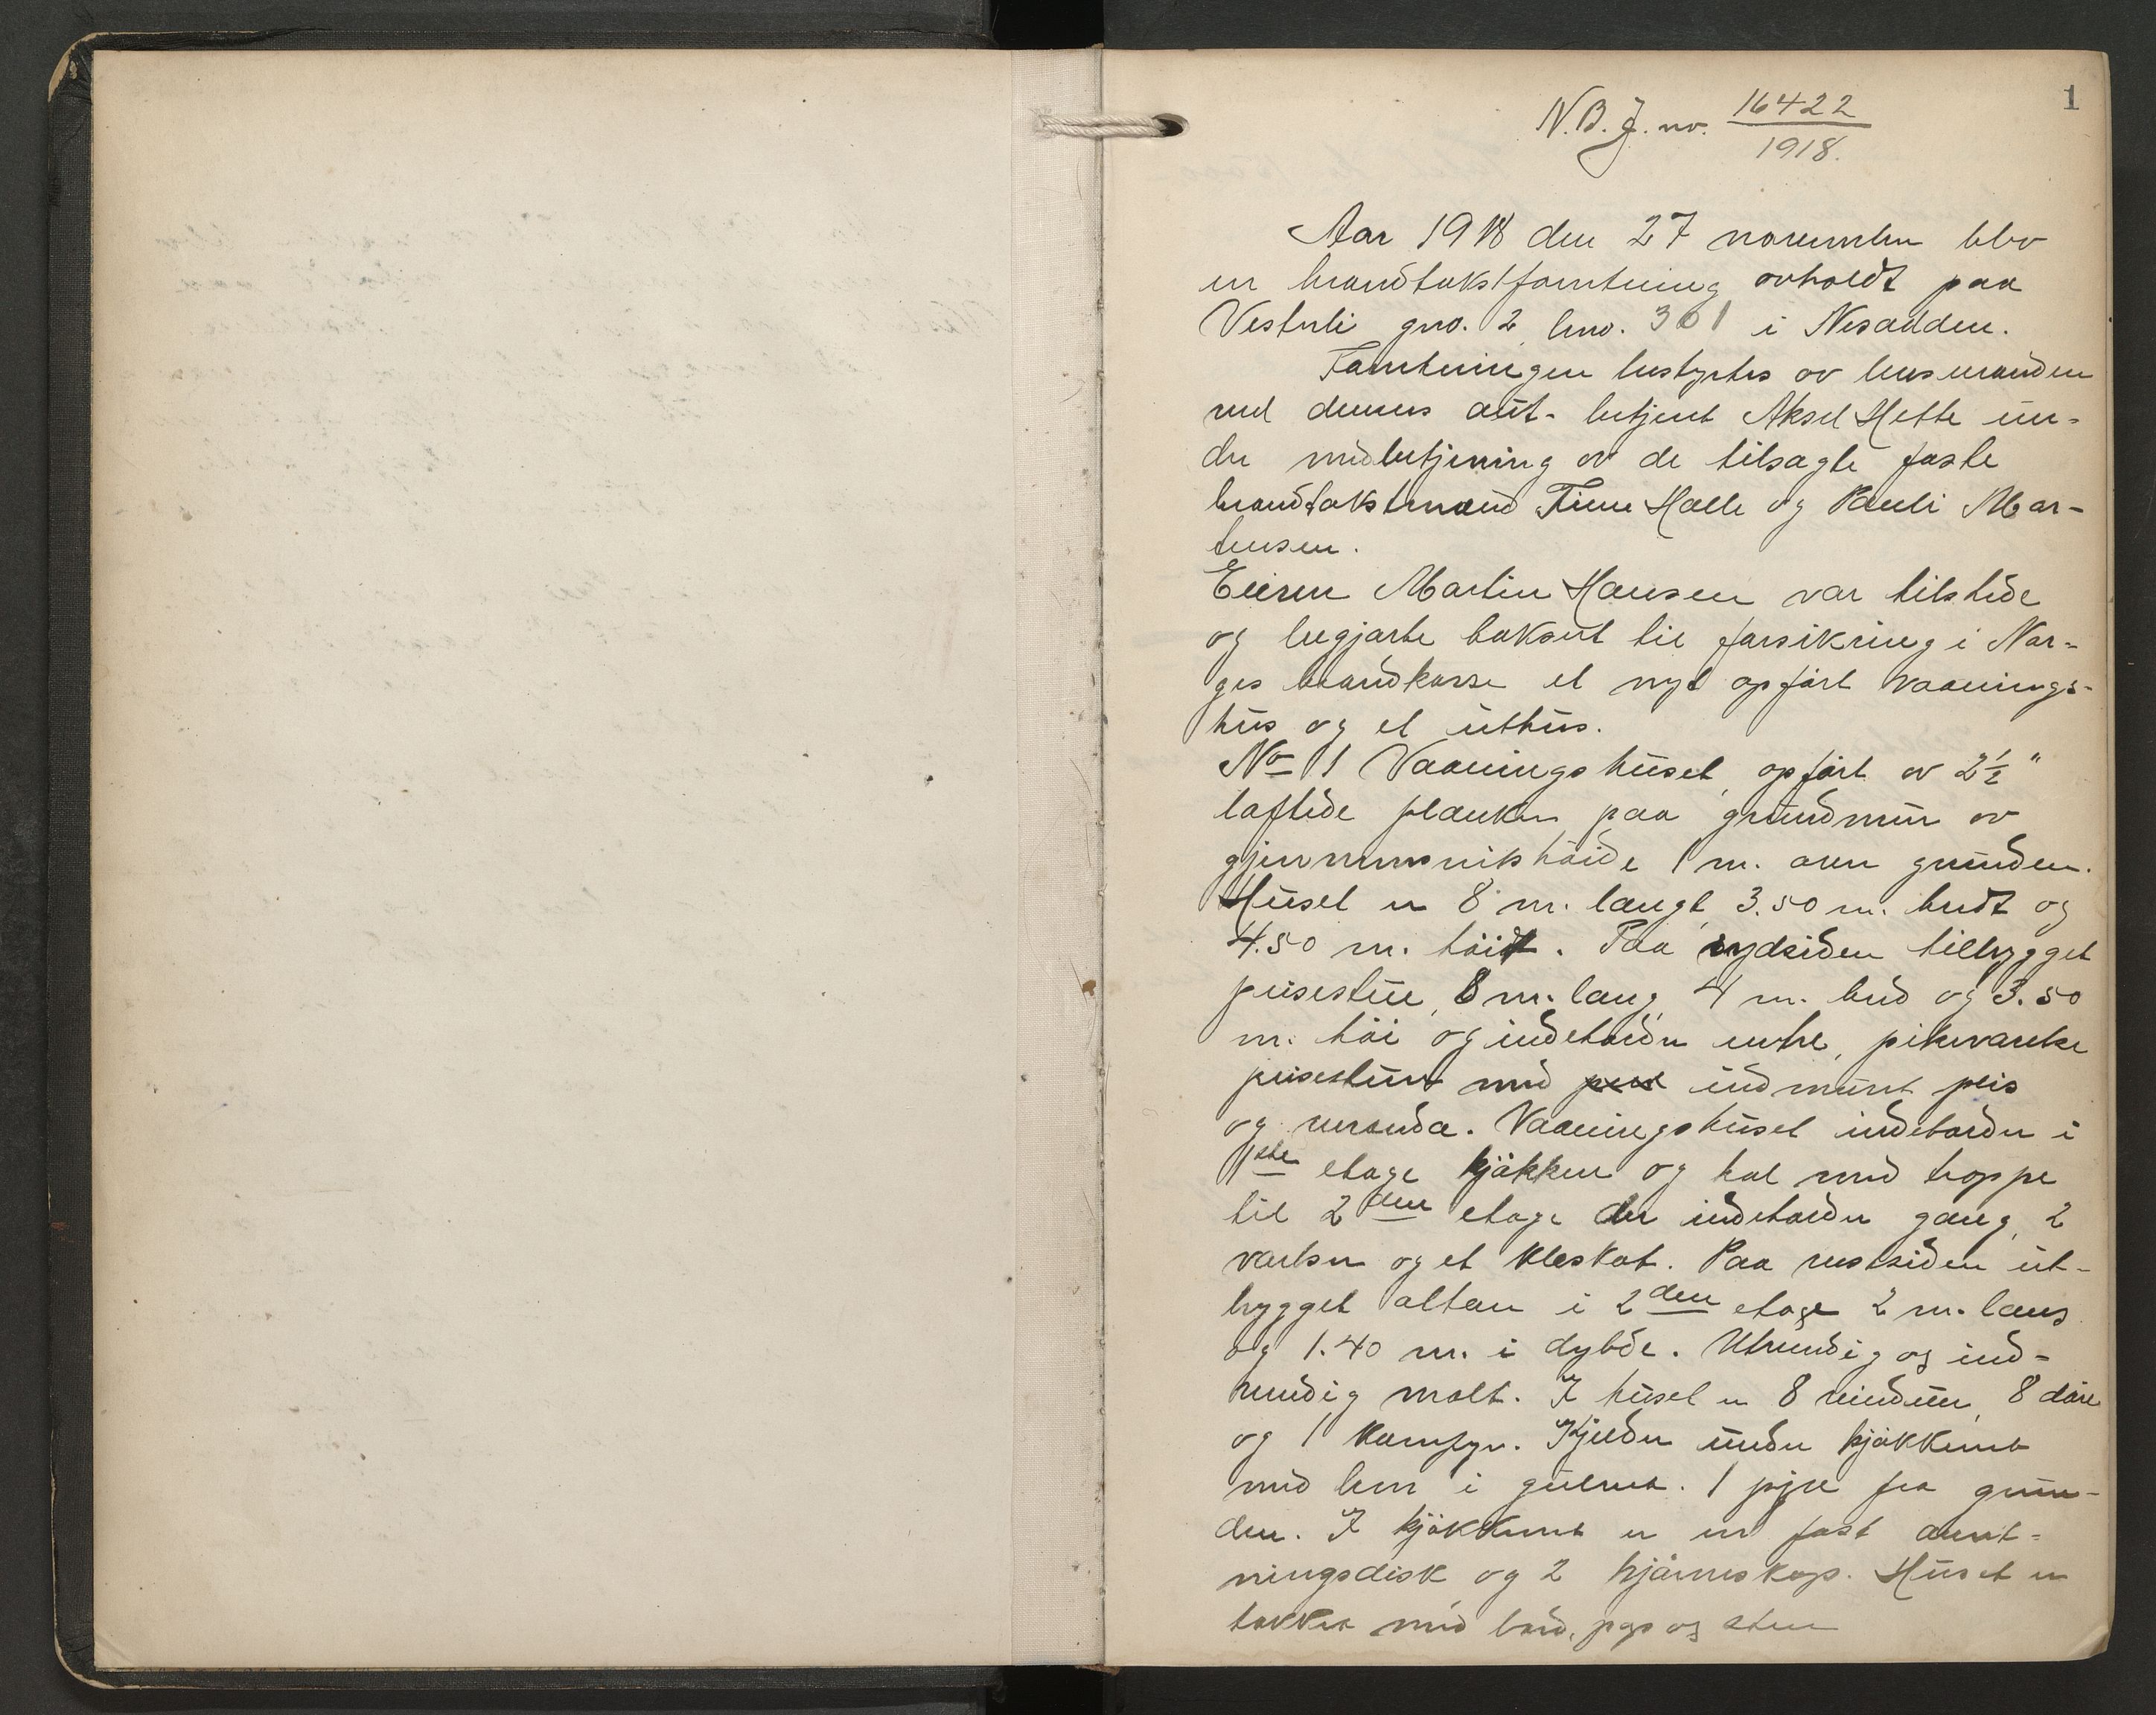 1
N.B.J. no. 16422/1918.
Aar 1918 den 27 november blev
en brandtakstforretning avholdt paa
Vesterli gno. 2, bno. 361 i Nesodden.
Forretningen bestyrtes av lensmanden
ved dennes aut. betjent Aksel Hette un-
der medbetjening av de tilsagte faste
brandtakstmænd Finn Halle og Pauli Mar-
tensen.
Eieren Martin Hansen var tilstede
og begjærte taksert til forsikring i Nor-
ges brandkasse et nyt opført vaanings-
hus og et uthus.
No 1 Vaaningshuset, opført av 2½"
laftede planker paa grundmur av
gjennemsnitshöide 1 m. over grunden.
Huset er 8 m. langt, 3.50 m. bredt og
4.50 m. höidt. Paa sydsiden tilbygget
peisestue, 8 m. lang, 4 m. bred og 3.50
m. höi og indeholder entre, pikeværelse
peisestue med indmuret peis
og veranda. Vaaningshuset indeholder i
1ste etage kjökken og hal med trappe
til 2den etage der indeholder gang, 2
værelser og et kleskot. Paa vestsiden ut-
bygget altan i 2den etage 2 m. lang
og 1.40 m. i dybde. Utvendig og ind-
vendig malt. I huset er 8 vinduer, 8 döre
og 1 komfyr. Kjelder under kjökkenet
med lem i gulvet. 1 pipe fra grun-
den. I kjökkenet er en fast anret-
ningsdisk og 2 hjörneskap. Huset er
tækket med bord, pap og sten